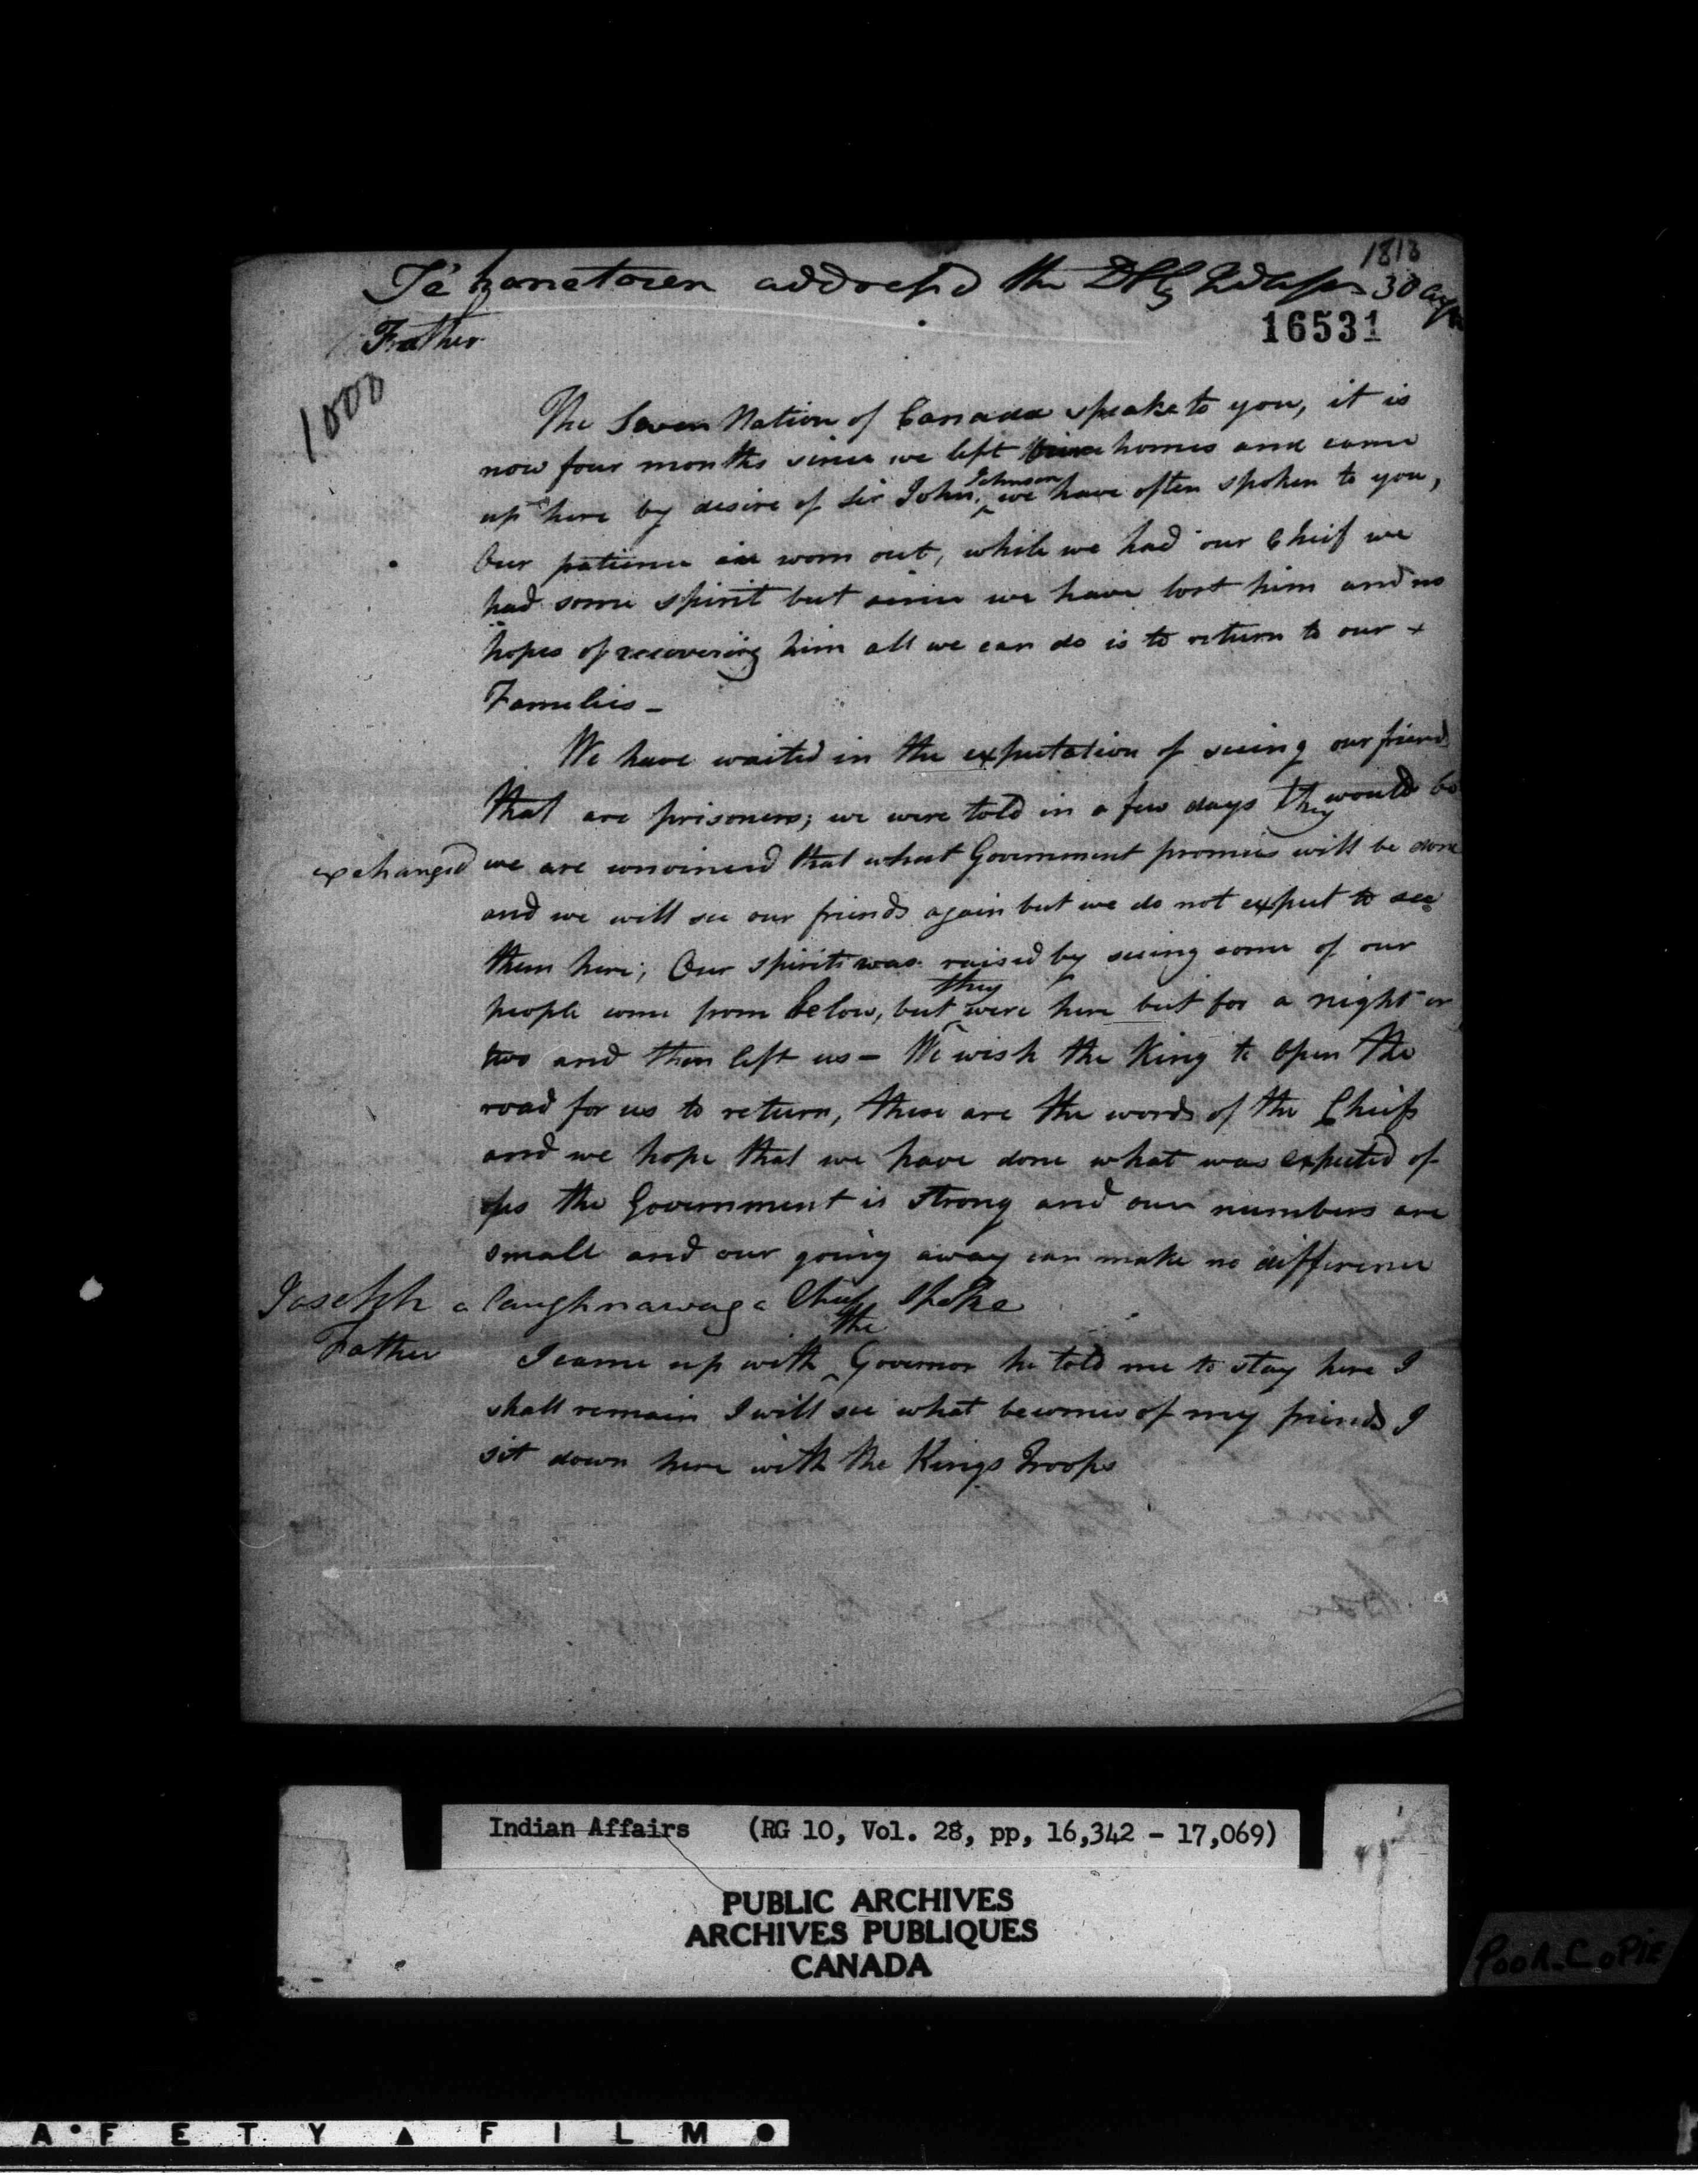 1813
Te honetoren addressd the DSG Ind Affrs 30 Aug
16531
Father
1000
The Seven Nation of Canada speake to you, it is
now four months since we left homes and came
up here by desire of Sir John Johnson, we have often spoken to you,
Our patience is worn out, while we had our Cheif we
had some spirit but since we have lost him and no
hopes of recovering him all we can do is to return to our +
Families —
We have waited in the expectation of seeing our friends
that are prisoners; we were told in a few days they would be
exchanged we are convinced that what Government promises will be done
and we will see our friends again but we do not expect to see
them here; Our spirits was raised by seeing some of our
people come from below, but they were here but for a night or
two and then left us — We wish the King to Open the
road for us to return, these are the words of the Cheifs
and we hope that we have done what was expected of
us the Government is strong and our numbers are
small and our going away can make no difference
Joseph a Caughnawaga Chief spoke
Father I came up with the Governor he told me to stay here I
shall remain I will see what becomes of my friends I
sit down here with the Kings Troops
Indian Affairs (RG 10, Vol. 28, pp, 16,342 - 17,069)
PUBLIC ARCHIVES
ARCHIVES PUBLIQUES
CANADA
POOR COPIE
AFETY ▲ FILM ●